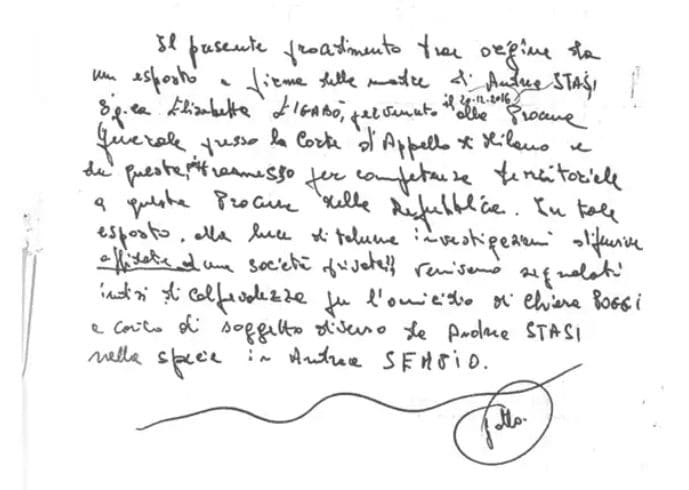 Il presente procedimento trae origine da
un esposto a firma della madre di Andrea STASI
Sig.ra Elisabetta LIGABÒ, pervenuto il 20.12.2016 alla Procura
Generale presso la Corte d'Appello di Milano e
da questa, trasmesso per competenza territoriale
a questa Procura della Repubblica. In tale
esposto, alla luce di talune investigazioni difensive
affidate ad una società privata, venivano segnalati
indizi di colpevolezza per l'omicidio di Chiara POGGI
a carico di soggetto diverso da Andrea STASI
nella specie in Andrea SEMPIO.